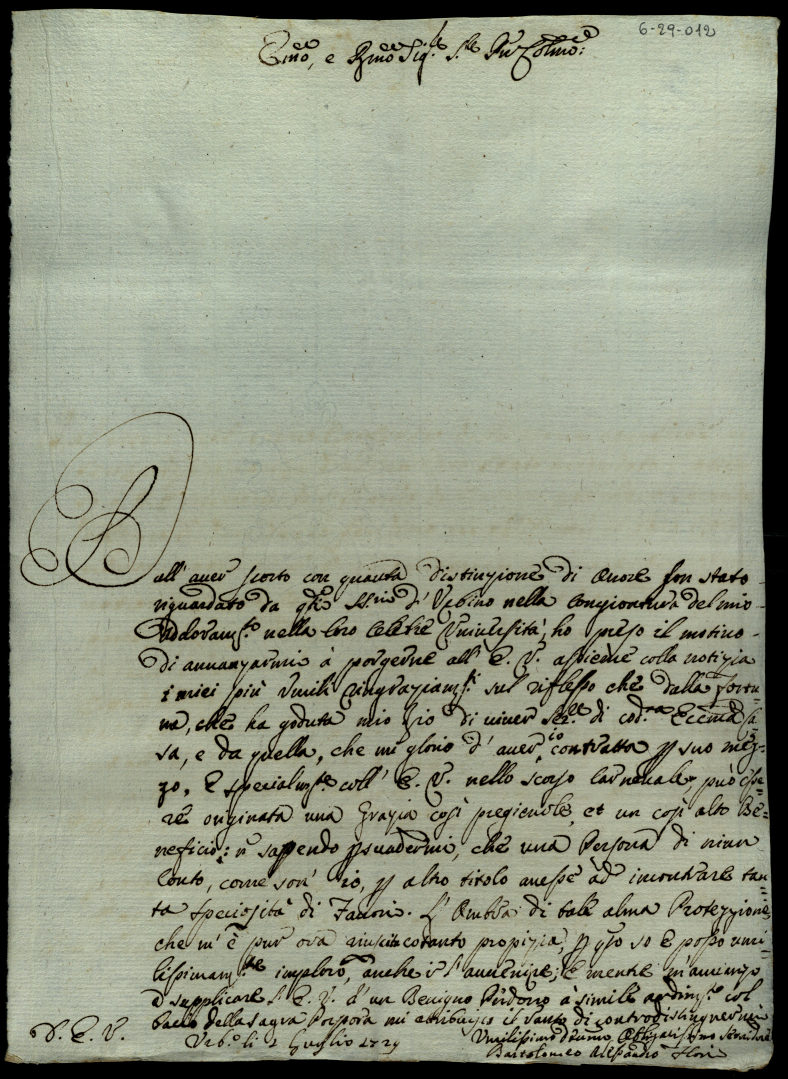 6-29-012
Emo, e Rmo Sig.re S.re Pne Colmo:
Dall' aver scorto con quanta distinzione di Cuore son stato
riguardato da q.ti SS.ri d' Urbino nella congiontura del mio
Addoram.to nella loro Celebre Università, ho preso il motivo
di avvanzarmi à porgerne all' E. V. assieme colla notizia
i miei più umili ringraziam.ti sul riflesso che dalla fortu=
na, che ha goduta mio Zio di viver Ser.re di cod.ta Eccma Ca=
sa, e da quella, che mi glorio d' aver io contratta p suo mez=
zo, e specialm.te coll' E. V. nello scorso Carnevale, può esse=
re originata una Grazia così pregievole, et un così alto Be=
neficio; n sapendo psuadermi, che una Persona di niun
Conto, come son' io, p altro titolo avesse àd incontrare tan=
ta speciosità di Favori. L' Ombra di tale alma Protezzione,
che m' è pur ora riuscita cotanto propizia, p q.to so e posso umi=
lissimam.te imploro, anche p l' avvenire; e mentre m' avvanzo
a supplicare l' E. V. d' un Benigno Perdono à simile ardim.to col
bacio della Sagra Porpora mi attribuisco il vanto di controdistinguermi
D. E. V.
Urb.o li 2 Luglio 1729
Umilissimo Dvmo Obbligatissimo Servidore
Bartolomeo Alessandro Flori